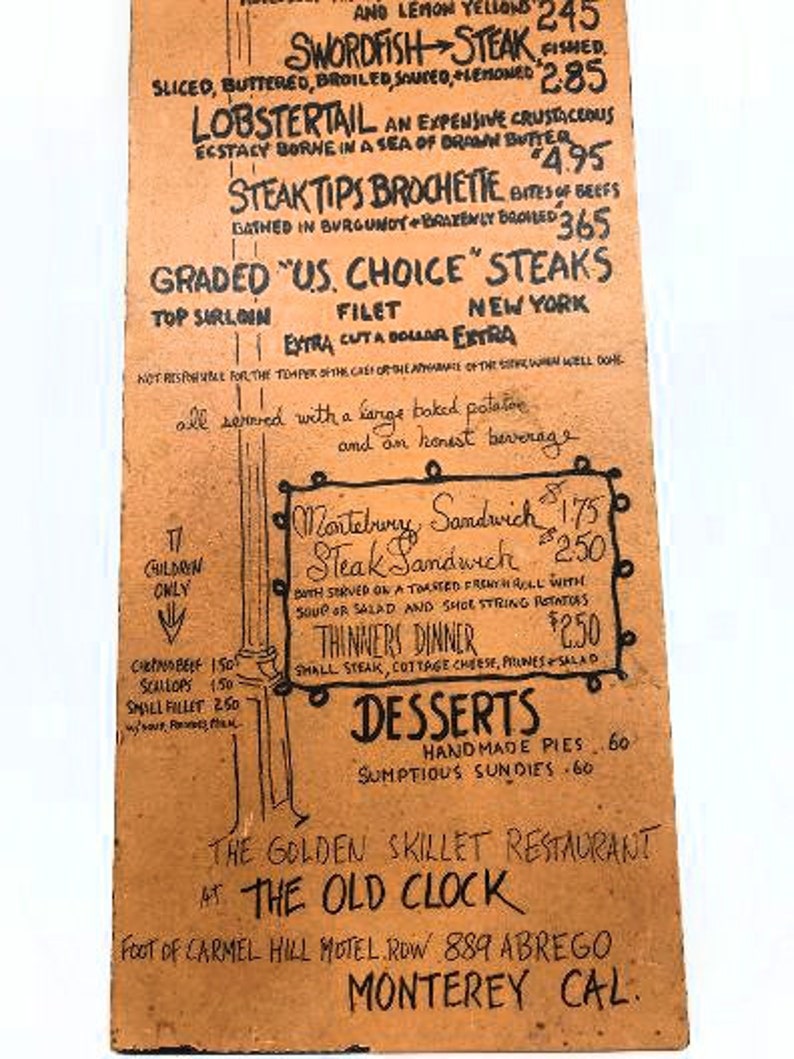 AND LEMON YELLOWS 245
SWORDFISH→STEAK FISHED,
SLICED, BUTTERED, BROILED, SAUCED, + LEMONED $2.85
LOBSTERTAIL AN EXPENSIVE CRUSTACEOUS
ECSTACY BORNE IN A SEA OF DRAWN BUTTER
$4.95
STEAK TIPS BROCHETTE BITES OF BEEFS
BATHED IN BURGUNDY + BRAZENLY BROILED 365
GRADED "U.S. CHOICE" STEAKS
TOP SIRLOIN FILET NEW YORK
EXTRA CUT A DOLLAR EXTRA
NOT RESPONSIBLE FOR THE TEMPER OF THE CHEF OR THE APPEARANCE OF THE STEAK WHEN WELL DONE.
all served with a large baked potatoe
and an honest beverage
Montebury Sandwich $1.75
Steak Sandwich $2.50
BOTH SERVED ON A TOASTED FRENCH ROLL WITH
SOUP OR SALAD AND SHOE STRING POTATOES
THINNERS DINNER $2.50
SMALL STEAK, COTTAGE CHEESE, PRUNES + SALAD
CHILDREN
ONLY
CHOPPED BEEF 1.50
SCALLOPS 1.50
SMALL FILLET 2.50
W/ SOUP, POTATOES, MILK
DESSERTS
HANDMADE PIES .60
SUMPTIOUS SUNDIES .60
THE GOLDEN SKILLET RESTAURANT
AT THE OLD CLOCK
FOOT OF CARMEL HILL MOTEL ROW 889 ABREGO
MONTEREY CAL.